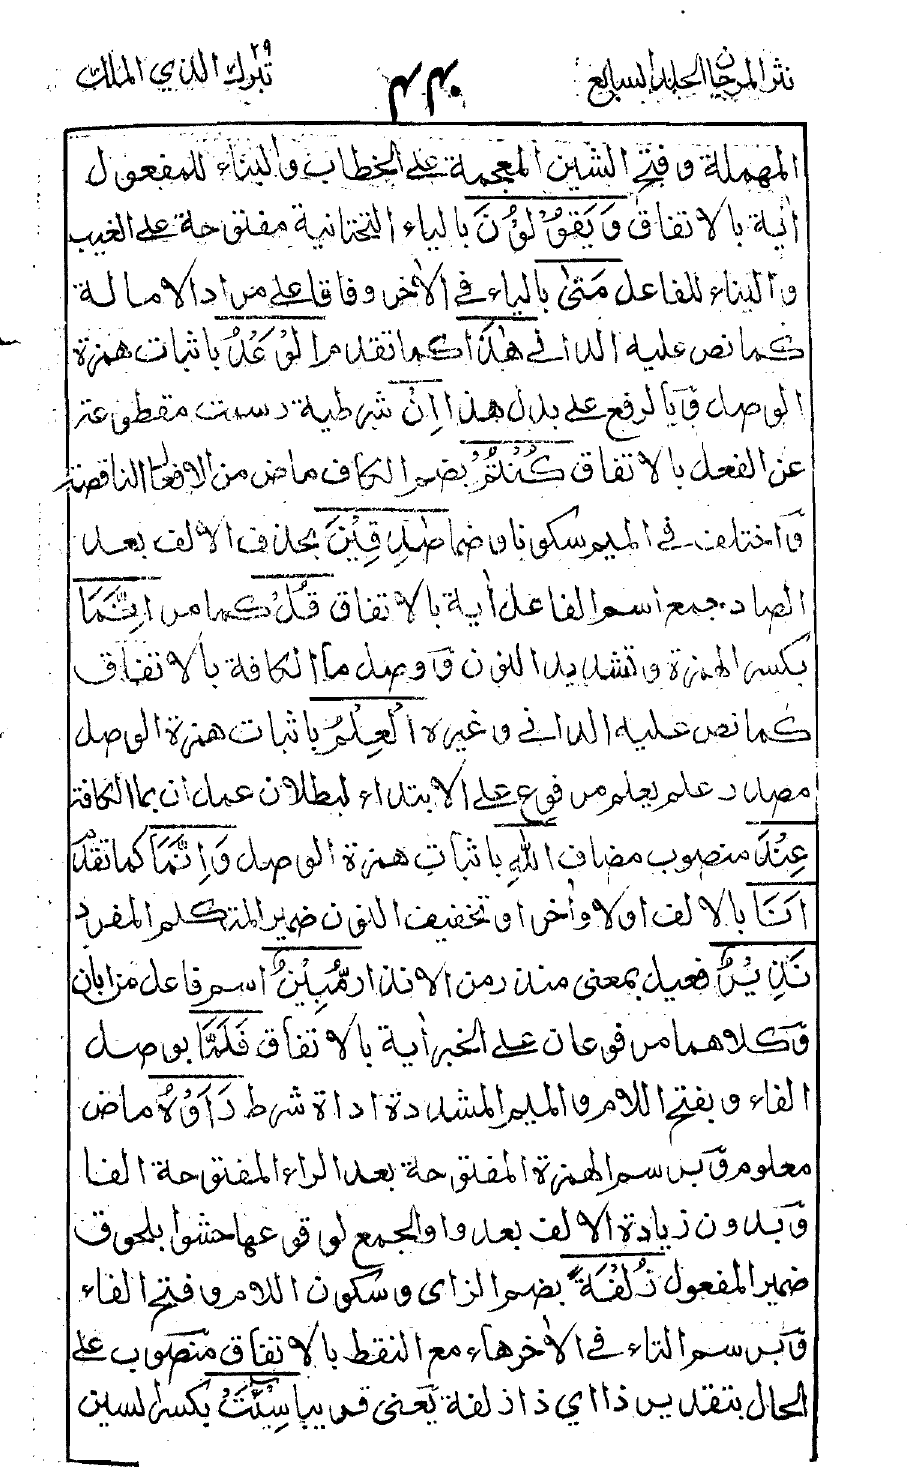 نثر المرجان الجلد السابع ٤٤٠ تبرك الذي الملك ٢٩
المهملة و فتح الشين المعجمة على الخطاب والبناء للمفعول
اٰية بالاتفاق وَيَقُوْلُوْنَ بالياء التحتانية مفتوحة على الغيب
والبناء للفاعل مَتٰى بالياء في الاٰخر وفاقا على مراد الامالة
كما نص عليه الداني هٰذَا كما تقدم الْوَعْدُ باثبات همزة
الوصل وبالرفع على بدل هذا اِنْ شرطية رسمت مقطوعة
عن الفعل بالاتفاق كُنْتُمْ بضم الكاف ماض من الافعال الناقصة
واختلف في الميم سكونا وضما صٰدِقِيْنَ بحذف الالف بعد
الصاد جمع اسم الفاعل اٰية بالاتفاق قُلْ كما مر اِنَّمَا
بكسر الهمزة وتشديد النون ووصل ما الكافة بالاتفاق
كما نص عليه الداني وغيره الْعِلْمُ باثبات همزة الوصل
مصدر علم يعلم مرفوع على الابتداء لبطلان عمل ان بما الكافة
عِنْدَ منصوب مضاف اللّٰهِ باثبات همزة الوصل وَاِنَّمَا كما تقدم
اَنَا بالالف اولا واٰخرا وتخفيف النون ضمير المتكلم المفرد
نَذِيْرٌ فعيل بمعنى منذر من الانذار مُّبِيْنٌ اسم فاعل من ابان
وكلاهما مرفوعان على الخبر اٰية بالاتفاق فَلَمَّا بوصل
الفاء وبفتح اللام والميم المشددة اداة شرط رَاَوْهُ ماض
معلوم وبرسم الهمزة المفتوحة بعد الراء المفتوحة الفا
وبدون زيادة الالف بعد واو الجمع لوقوعها حشوا بلحوق
ضمير المفعول زُلْفَةً بضم الزاى وسكون اللام وفتح الفاء
وبرسم التاء في الاٰخر هاء مع النقط بالاتفاق منصوب على
الحال بتقدير ذا اي ذا زلفة يعنى قريبا سِيْٓئَتْ بكسر السين